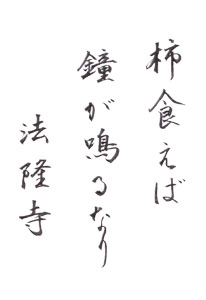 柿食えば
鐘が鳴るなり
法隆寺